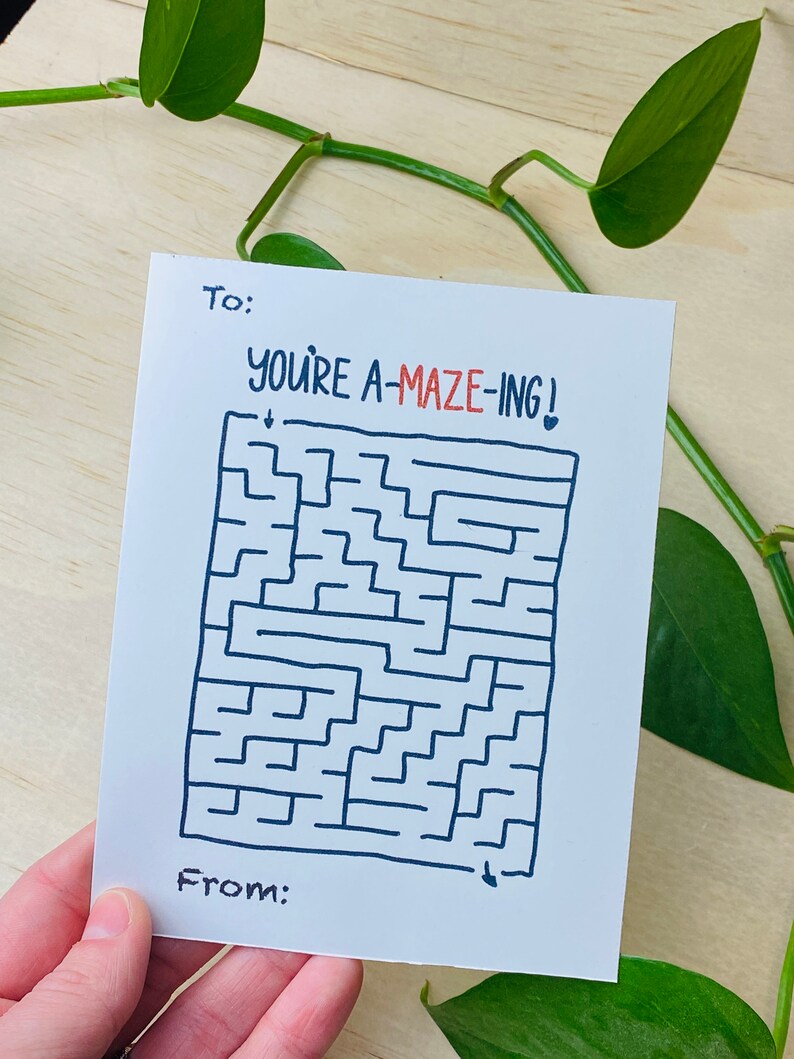 To:
YOU'RE A-MAZE-ING!
From: